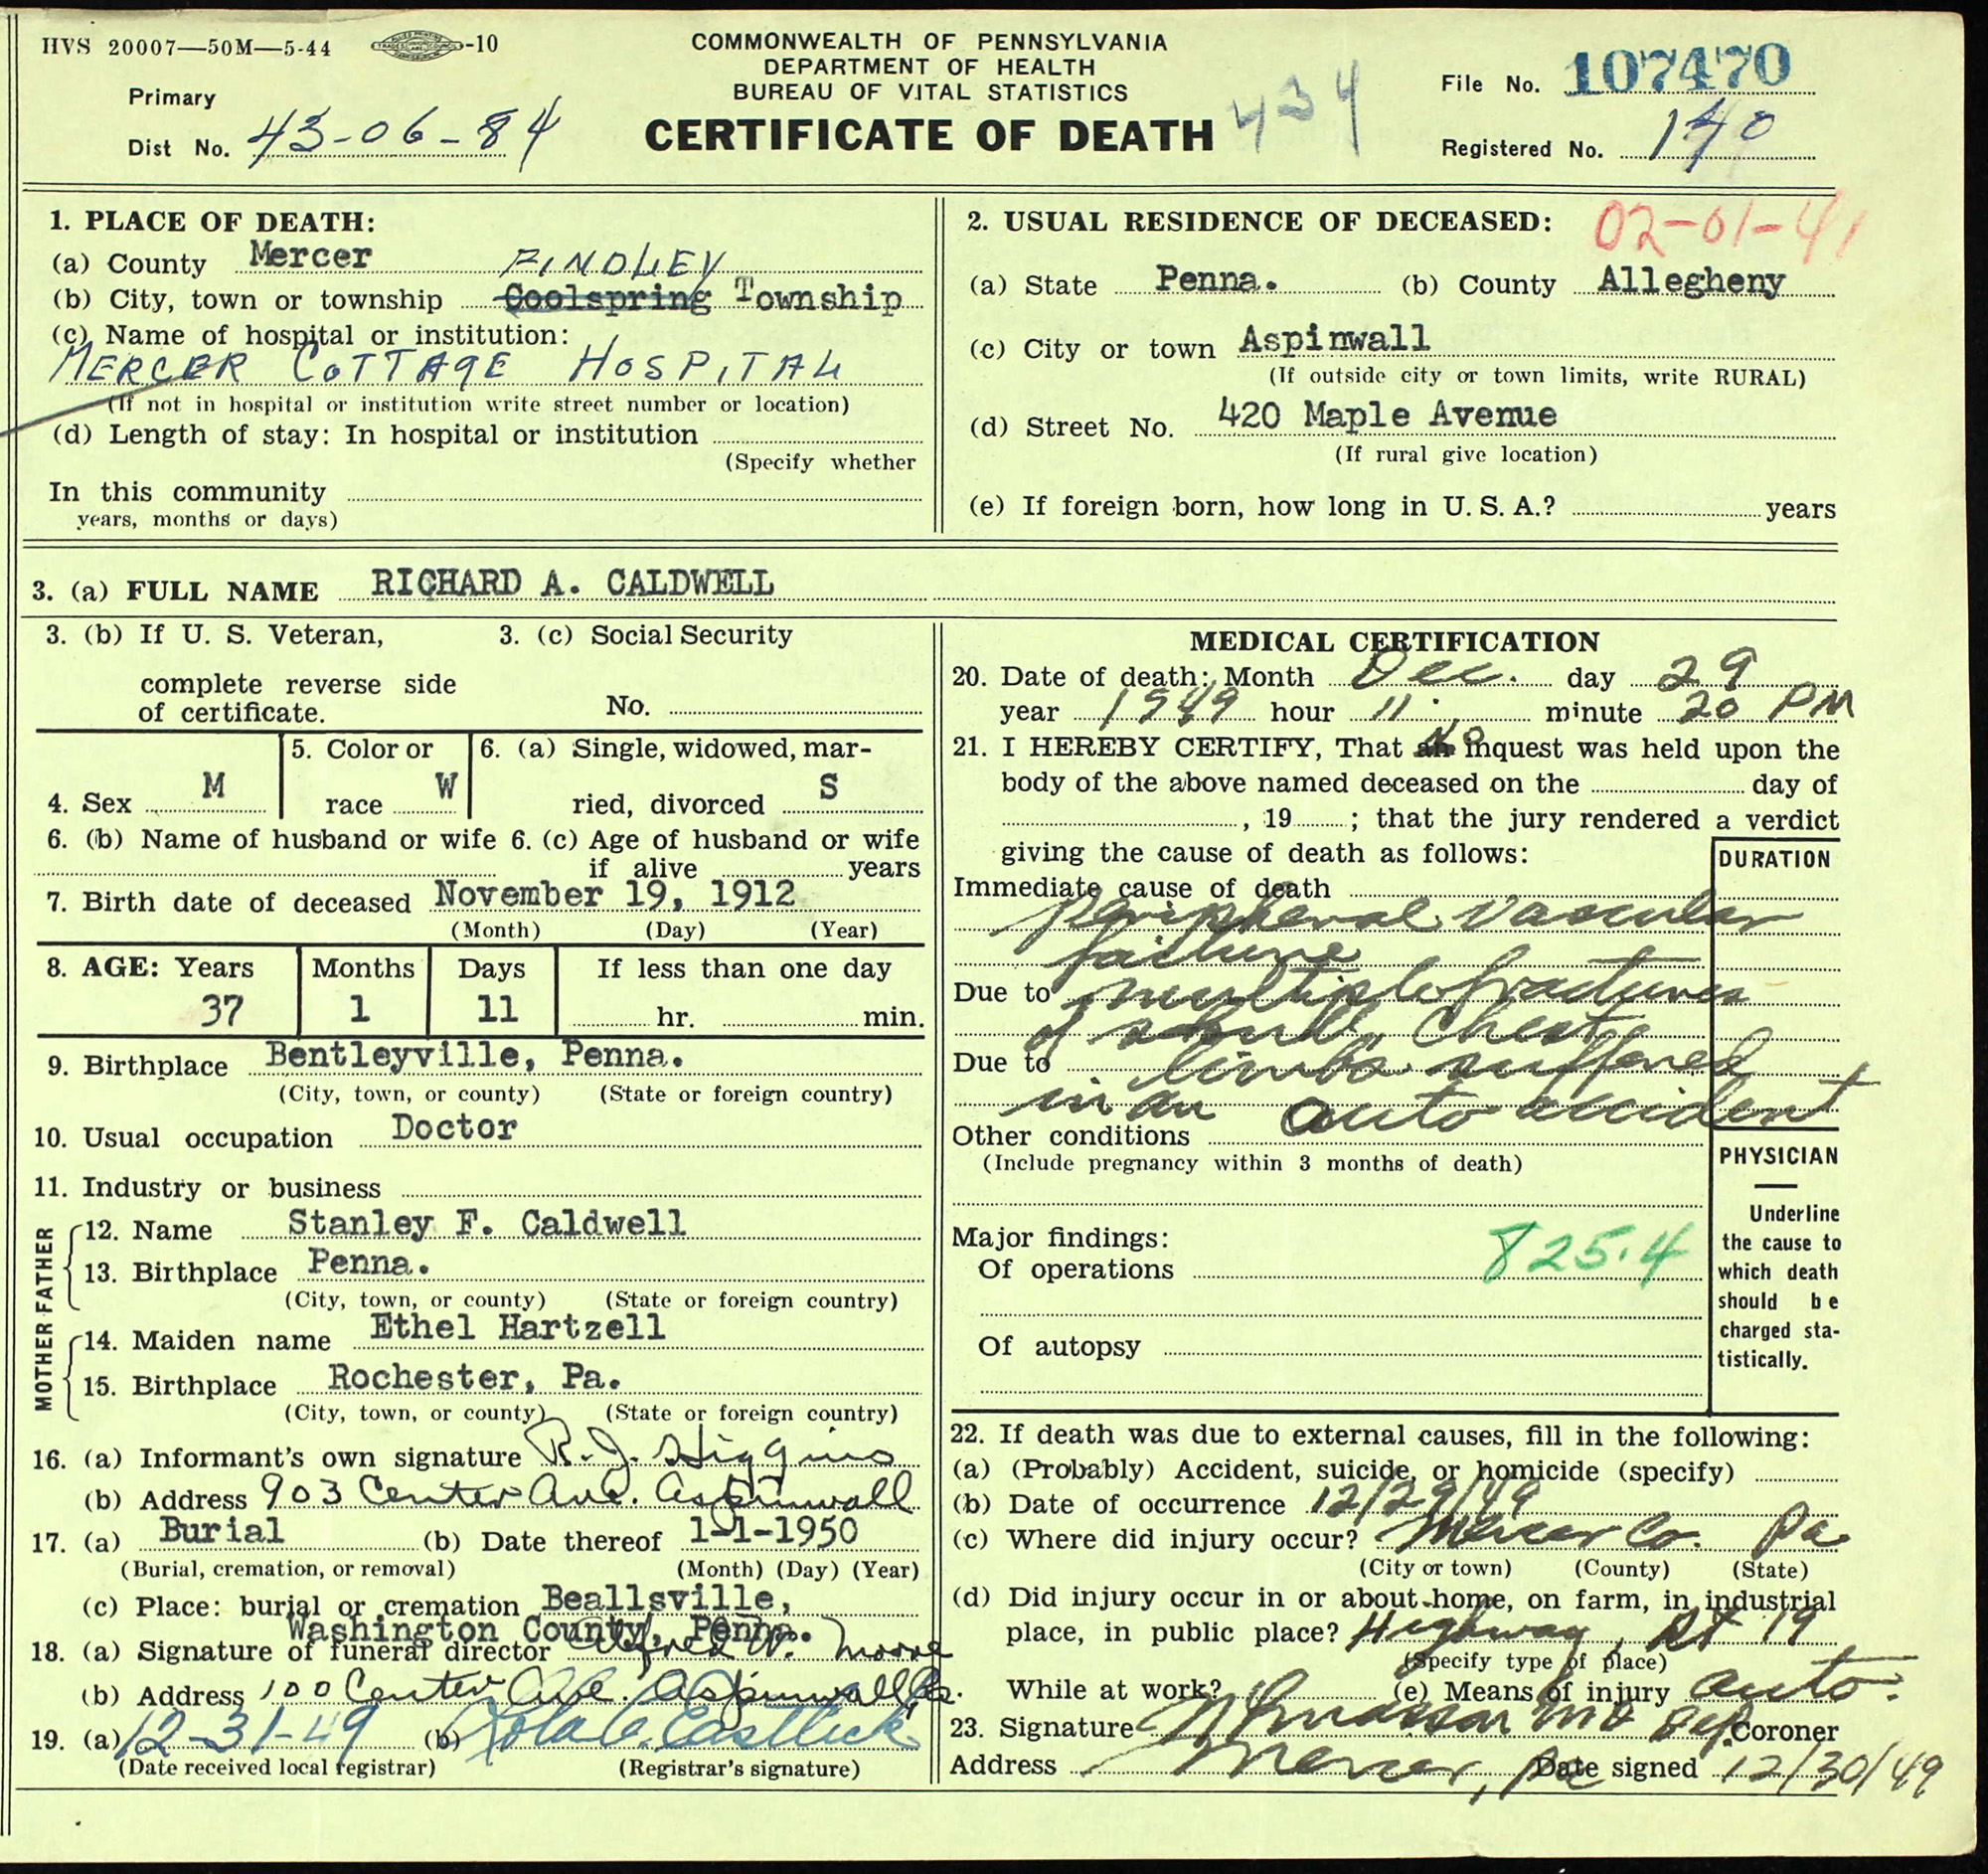 HVS 20007—50M—5-44 -10
COMMONWEALTH OF PENNSYLVANIA
DEPARTMENT OF HEALTH
BUREAU OF VITAL STATISTICS
CERTIFICATE OF DEATH
434
Primary
Dist No. 43-06-84
File No. 107470
Registered No. 140
1. PLACE OF DEATH:
(a) County Mercer FINDLEY
(b) City, town or township Coolspring Township
(c) Name of hospital or institution:
MERCER COTTAGE HOSPITAL
(If not in hospital or institution write street number or location)
(d) Length of stay: In hospital or institution
(Specify whether
In this community
years, months or days)
2. USUAL RESIDENCE OF DECEASED: 02-01-41
(a) State Penna. (b) County Allegheny
(c) City or town Aspinwall
(If outside city or town limits, write RURAL)
(d) Street No. 420 Maple Avenue
(If rural give location)
(e) If foreign born, how long in U. S. A.? years
3. (a) FULL NAME RICHARD A. CALDWELL
3. (b) If U. S. Veteran, 3. (c) Social Security
complete reverse side
of certificate. No.
4. Sex M
5. Color or
race W
6. (a) Single, widowed, mar-
ried, divorced S
6. (b) Name of husband or wife 6. (c) Age of husband or wife
if alive years
7. Birth date of deceased November 19, 1912
(Month) (Day) (Year)
8. AGE: Years Months Days If less than one day
37 1 11 hr. min.
9. Birthplace Bentleyville, Penna.
(City, town, or county) (State or foreign country)
10. Usual occupation Doctor
11. Industry or business
FATHER
12. Name Stanley F. Caldwell
13. Birthplace Penna.
(City, town, or county) (State or foreign country)
MOTHER
14. Maiden name Ethel Hartzell
15. Birthplace Rochester, Pa.
(City, town, or county) (State or foreign country)
16. (a) Informant's own signature R. J. Higgins
(b) Address 903 Center Ave. Aspinwall
17. (a) Burial (b) Date thereof 1-1-1950
(Burial, cremation, or removal) (Month) (Day) (Year)
(c) Place: burial or cremation Beallsville,
Washington County, Penna.
18. (a) Signature of funeral director Alfred W. Moore
(b) Address 100 Center Ave. Aspinwall Pa.
19. (a) 12-31-49 (b) Lola C. Eastlick
(Date received local registrar) (Registrar's signature)
MEDICAL CERTIFICATION
20. Date of death: Month Dec. day 29
year 1949 hour 11 minute 20 PM
21. I HEREBY CERTIFY, That an No inquest was held upon the
body of the above named deceased on the day of
, 19 ; that the jury rendered a verdict
giving the cause of death as follows:
DURATION
Immediate cause of death
Peripheral Vascular
failure
Due to multiple fractures
of skull, Chest &
Due to limbs suffered
in an auto accident
Other conditions
(Include pregnancy within 3 months of death)
Major findings:
Of operations 825.4
Of autopsy
PHYSICIAN
Underline
the cause to
which death
should be
charged sta-
tistically.
22. If death was due to external causes, fill in the following:
(a) (Probably) Accident, suicide, or homicide (specify)
(b) Date of occurrence 12/29/49
(c) Where did injury occur? Mercer Co. Pa
(City or town) (County) (State)
(d) Did injury occur in or about home, on farm, in industrial
place, in public place? Highway, Rt 19
(Specify type of place)
While at work? (e) Means of injury auto.
23. Signature MD Dep. Coroner
Address Mercer, Pa Date signed 12/30/49